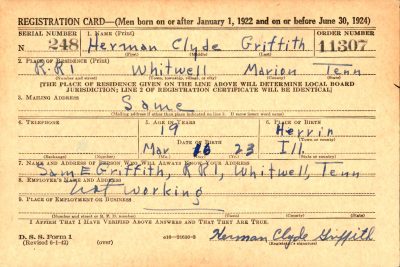 REGISTRATION CARD—(Men born on or after January 1, 1922 and on or before June 30, 1924)
SERIAL NUMBER 1. NAME (Print) ORDER NUMBER
N 248 Herman Clyde Griffith 11307
(First) (Middle) (Last)
2. PLACE OF RESIDENCE (Print)
R.R1 Whitwell Marion Tenn
(Number and street) (Town, township, village, or city) (County) (State)
[THE PLACE OF RESIDENCE GIVEN ON THE LINE ABOVE WILL DETERMINE LOCAL BOARD
JURISDICTION; LINE 2 OF REGISTRATION CERTIFICATE WILL BE IDENTICAL]
3. MAILING ADDRESS
Same
(Mailing address if other than place indicated on line 2. If same insert word same)
4. TELEPHONE 5. AGE IN YEARS 6. PLACE OF BIRTH
19 Herrin
DATE OF BIRTH (Town or county)
Mar 16 23 Ill.
(Exchange) (Number) (Mo.) (Day) (Yr.) (State or country)
7. NAME AND ADDRESS OF PERSON WHO WILL ALWAYS KNOW YOUR ADDRESS
Sam E Griffith, R R1, Whitwell, Tenn
8. EMPLOYER'S NAME AND ADDRESS
Not Working
9. PLACE OF EMPLOYMENT OR BUSINESS
(Number and street or R. F. D. number) (Town) (County) (State)
I AFFIRM THAT I HAVE VERIFIED ABOVE ANSWERS AND THAT THEY ARE TRUE.
D. S. S. Form 1
(Revised 6-1-42) (over) Herman Clyde Griffith
(Registrant's signature)